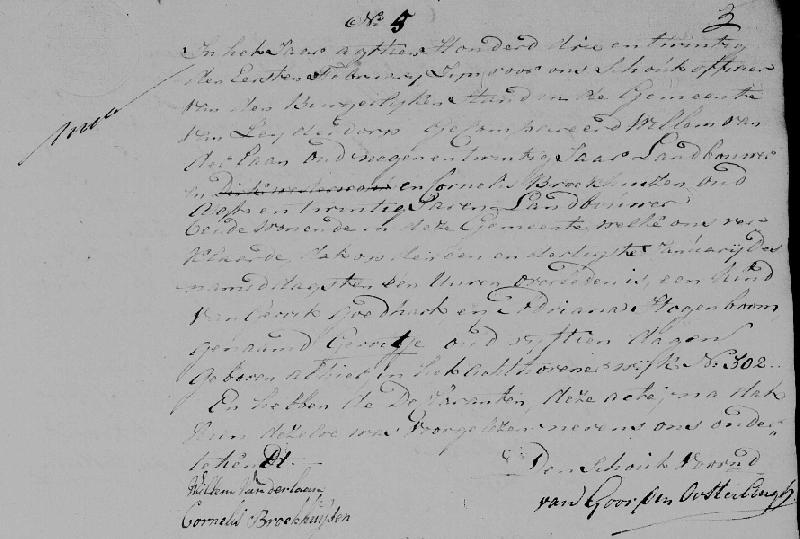 No 5
3
In het Jaar agttien Honderd drie en twintig
den Eersten February Zijn voor ons Schout officier
van den Burgerlijken Stand in de Gemeente
van Leyderdorp gecompareerd Willem van
der Laan oud negen en twintig Jaar Landbouwer
en Cornelis Broekhuizen oud
Agt en twintig Jaren Landbouwer
beide wonende in deze Gemeente, welke ons ver
klaarde, dat op den een en dertigste January des
namiddags ten één Uuren overleden is, een kind
van Goedhart en Adriana Hogenboom
genaamd Gerretje oud vyftien dagen
geboren alhier in het Achthovener wijk No 302.
En hebben de Declaranten, deze acte, na dat
hun dezelve was voorgelezen nevens ons onder
tekend.
Den Schout voornd
Willem Van der Laan
van Goor den Oosterlingh
Cornelis Broekhuijzen